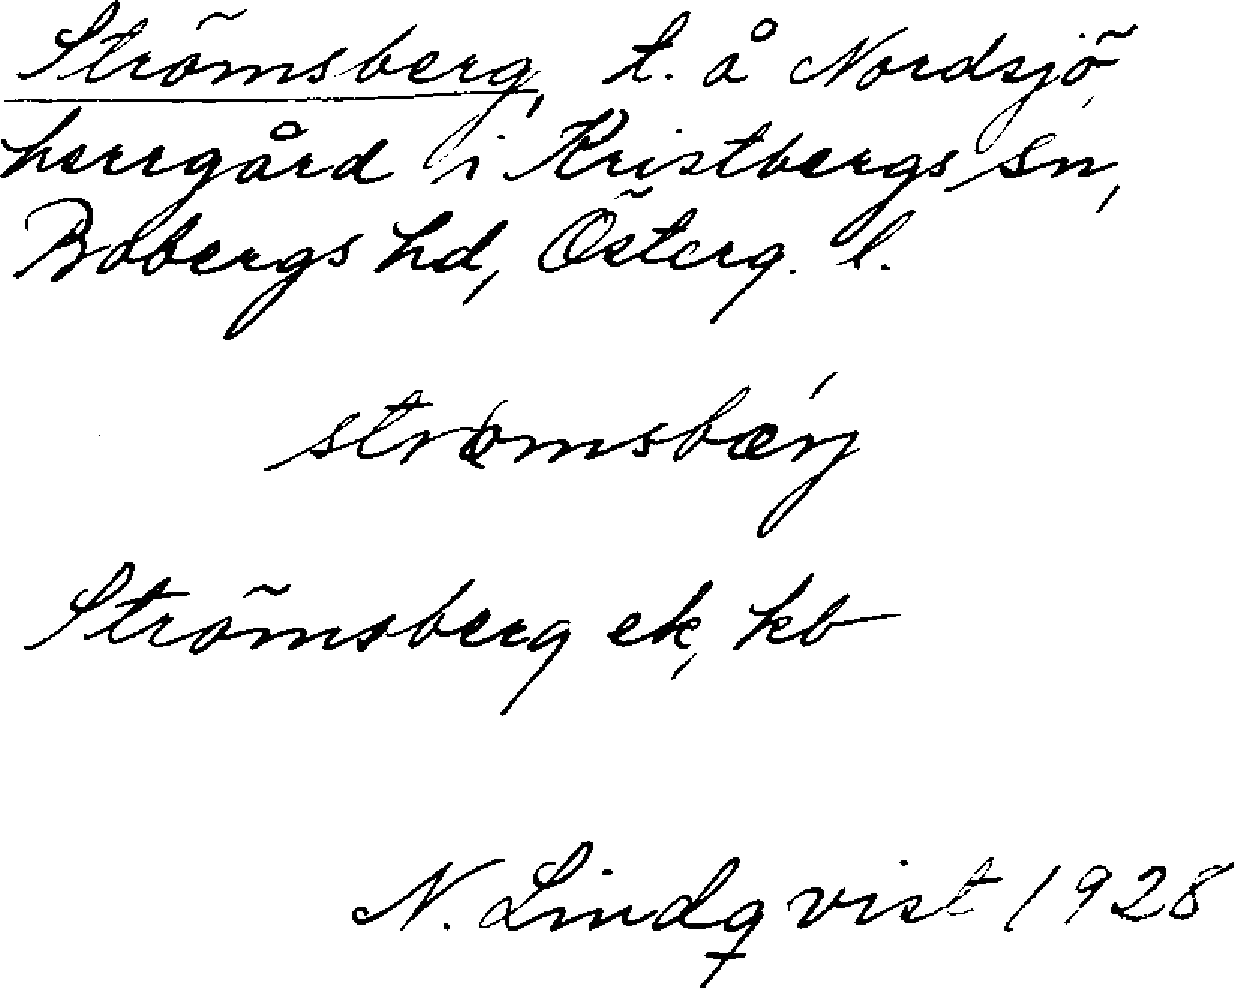 Strömsberg, t. å Nordsjö
herrgård i Kristbergs sn,
Bobergs hd, Österg. l.
strömsbærj
Strömsberg ek, kb
N. Lindqvist 1928